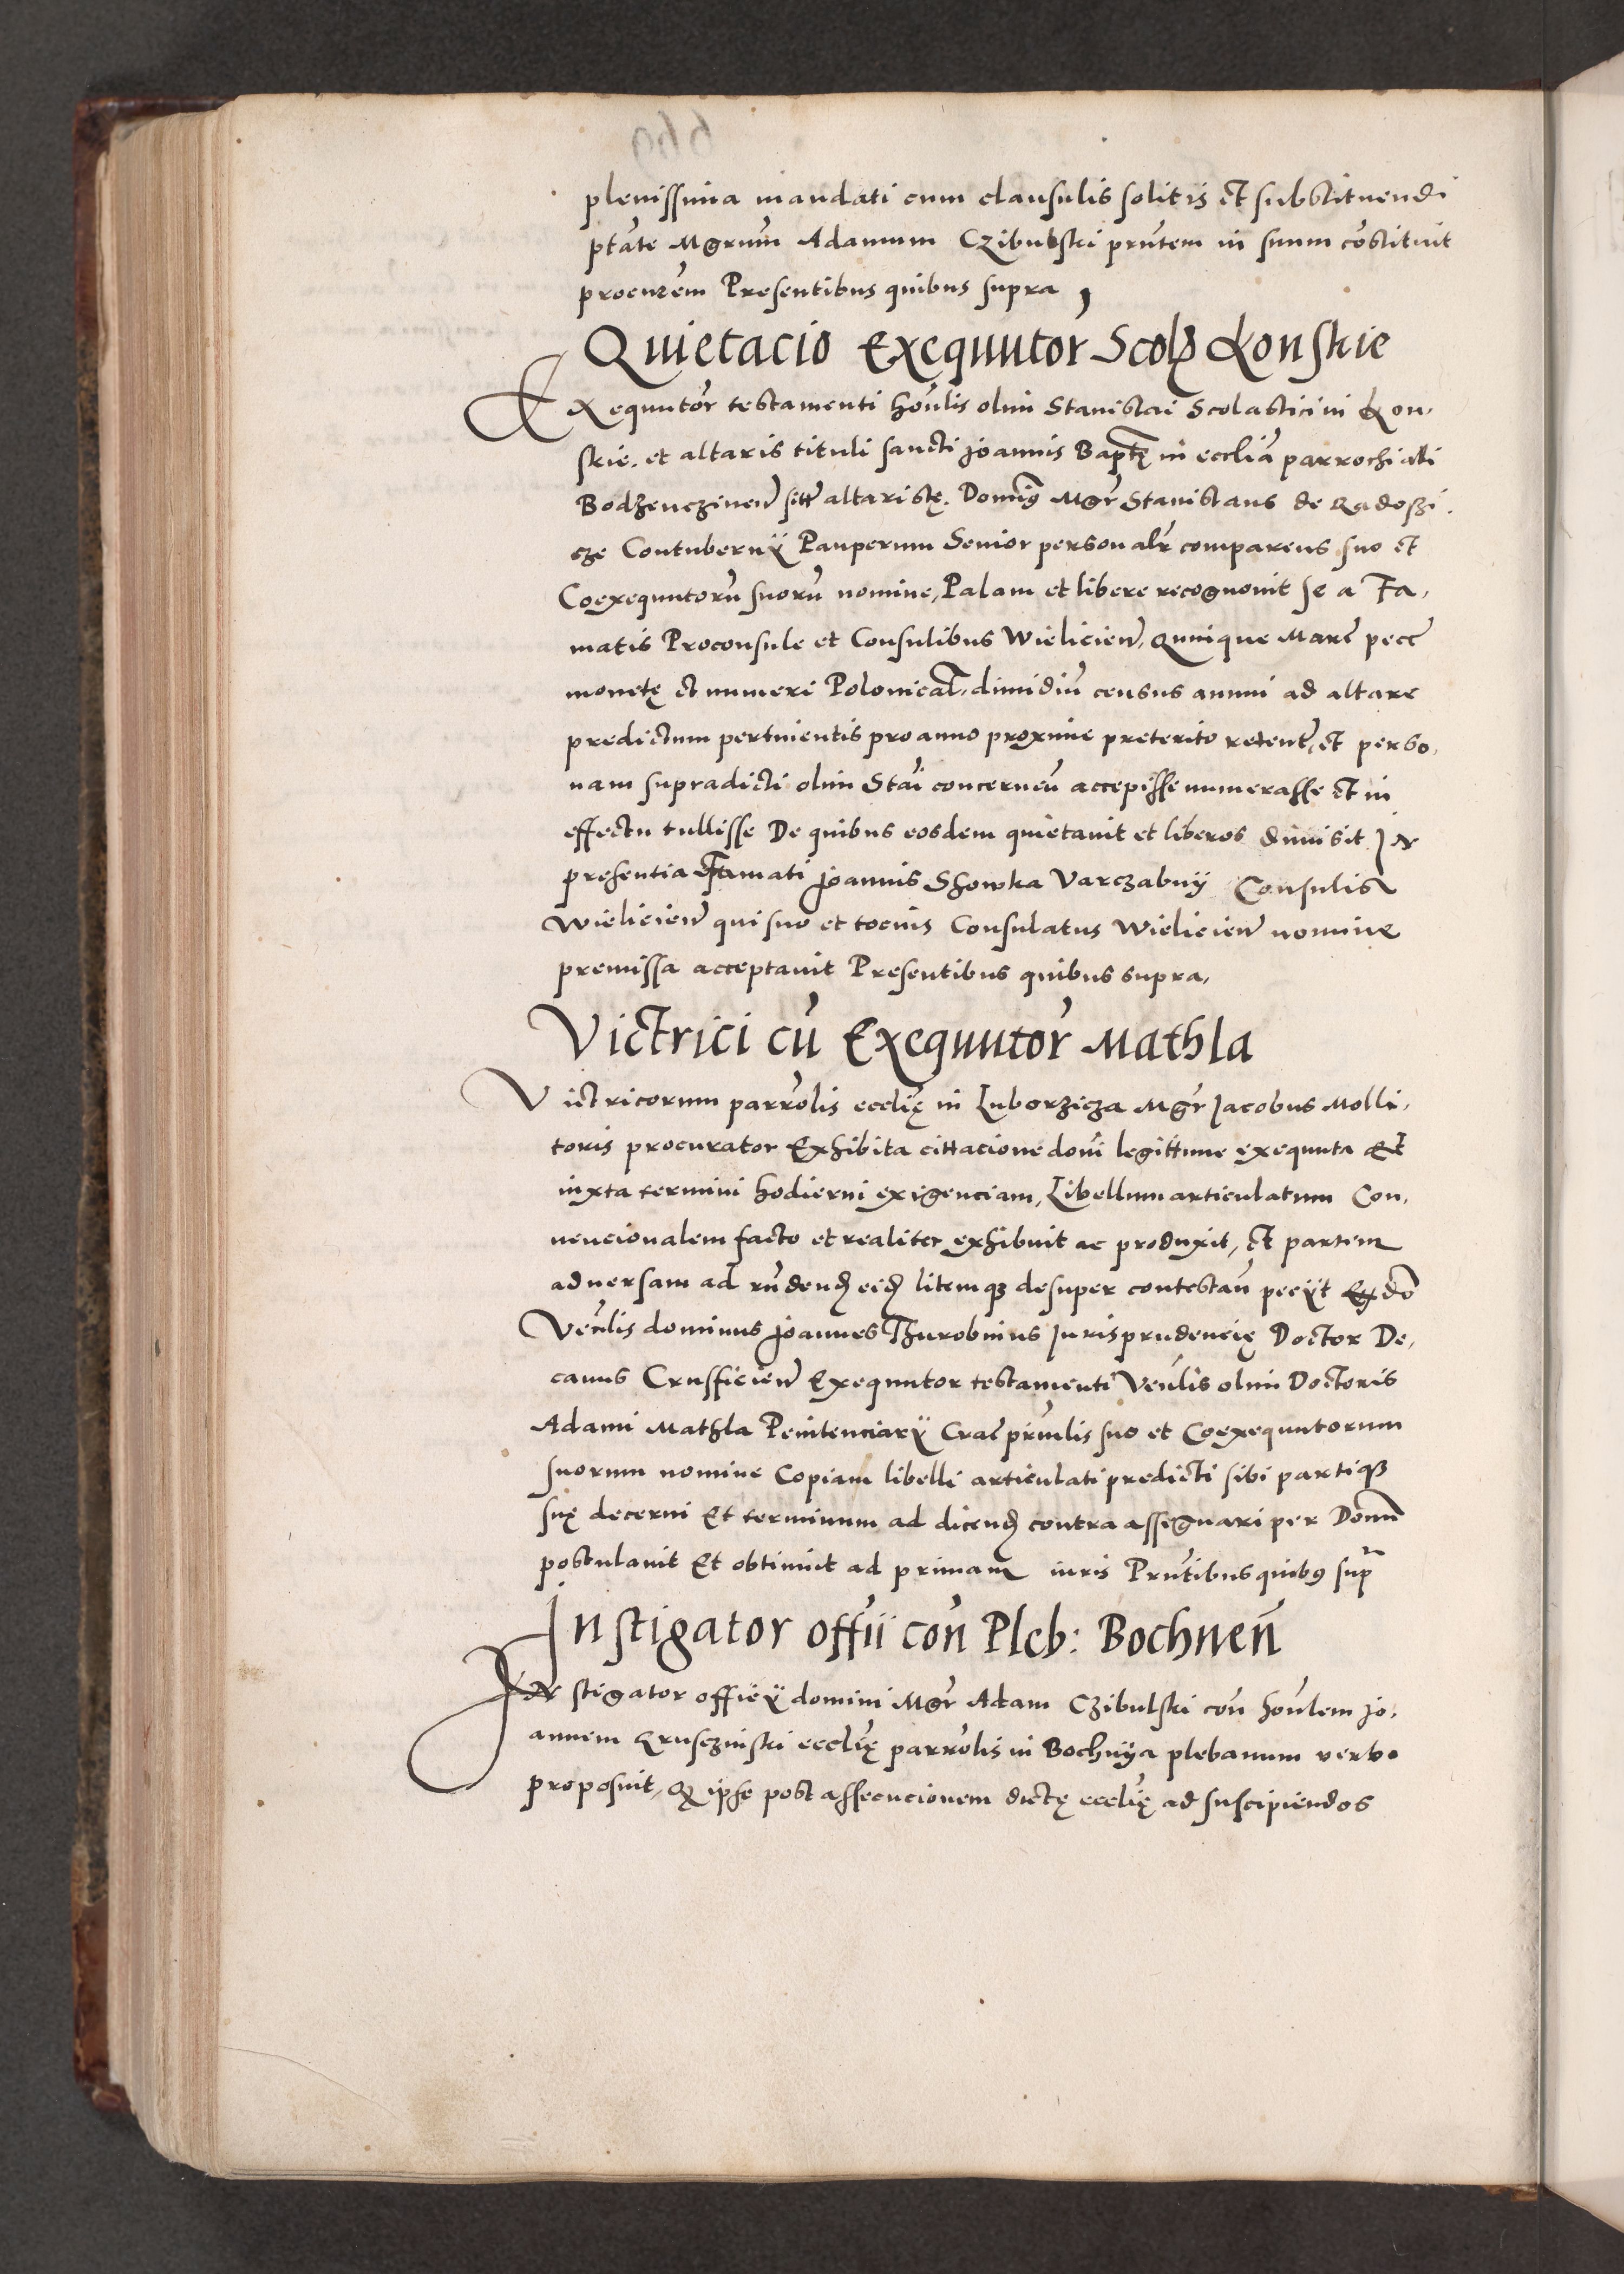 plenissima mandati cum clausulis solitis et substituendi
ptãte Mgrum Adamum Czibulski prñtem in suum cõstituit
procurẽm Presentibus quibus supra,
Quietacio Exequutor̃ Scol̃ Konskie
Exequutor̃ testamenti hoñlis olim Stanislai Scolastici in Kon,
skie, et altaris tituli sancti Joannis Bapt̃ę in eccliã parrochiali
Bodzencżineñ sitĩ altaristę. Domiꝰ Mgr̃ Stanislaus de Radoszi
cze Contubernÿ Pauperum Senior personalr̃ comparens suo et
Coexequutorũ suorũ nomine, Palam et libere recognovit se a Fa,
matis Proconsule et Consulibus Wielicieñ, Quinque Marc̃ pecc̃
monetę et numeri Polonical̃, dimidiũ census annui ad altare
predictum pertinentis pro anno proxime preterito retent̃, et perso,
nam supradicti olim Stãi concerneñ accepisse numerasse et in
effectu tullisse De quibus eosdem quietavit et liberos dimisit In
presentia Famati Joannis Showka Varczabnÿ Consulis
Wielicieñ qui suo et tocius Consulatus Wielicieñ nomine
premissa acceptavit Presentibus quibus supra,
Victrici cũ Exequutor̃ Mathla
Victricorum parrõlis ecclię in Luborzicza Mgr̃ Jacobus Molli,
toris procurator Exhibita cittacione doñi legittime exequuta Et
iuxta termini hodierni exigenciam, Libellum articulatum Con,
vencionalem facto et realiter exhibuit ac produxit, et partem
adversam ad rñdendꝭ eidꝭ litemqꝫ desuper contestañ peciÿt
Veñlis dominus Joannes Thurobinus Jurisprudencię Doctor De,
canus Crufficieñ Exequutor testamenti Veñlis olim Doctoris
Adami Mathla Penitenciarÿ Crac̃ prĩnlis suo et Coexequutorum
suorum nomine Copiam libelli articulati predicti sibi partiqꝫ
suę decerni Et terminum ad dicendꝭ contra assignari per Domñ
postulavit Et obtinuit ad primam iuris Prñtibus quibꝰ supr̃
Instigator offĩi coñ Pleb: Bochneñ
Instigator officÿ domini Mgr̃ Adam Czibulski coñ hoñlem Jo,
annem Krusczinski ecclię parrõlis in Bochnÿa plebanum verbo
proposuit, Qꝫ ipse post assecucionem dictę ecclię ad suscipiendos